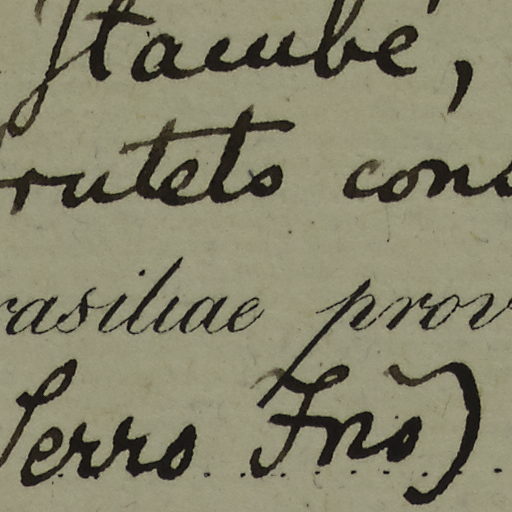 Itambé,
frutets cons
rasiliae prov
Serro Frõ)